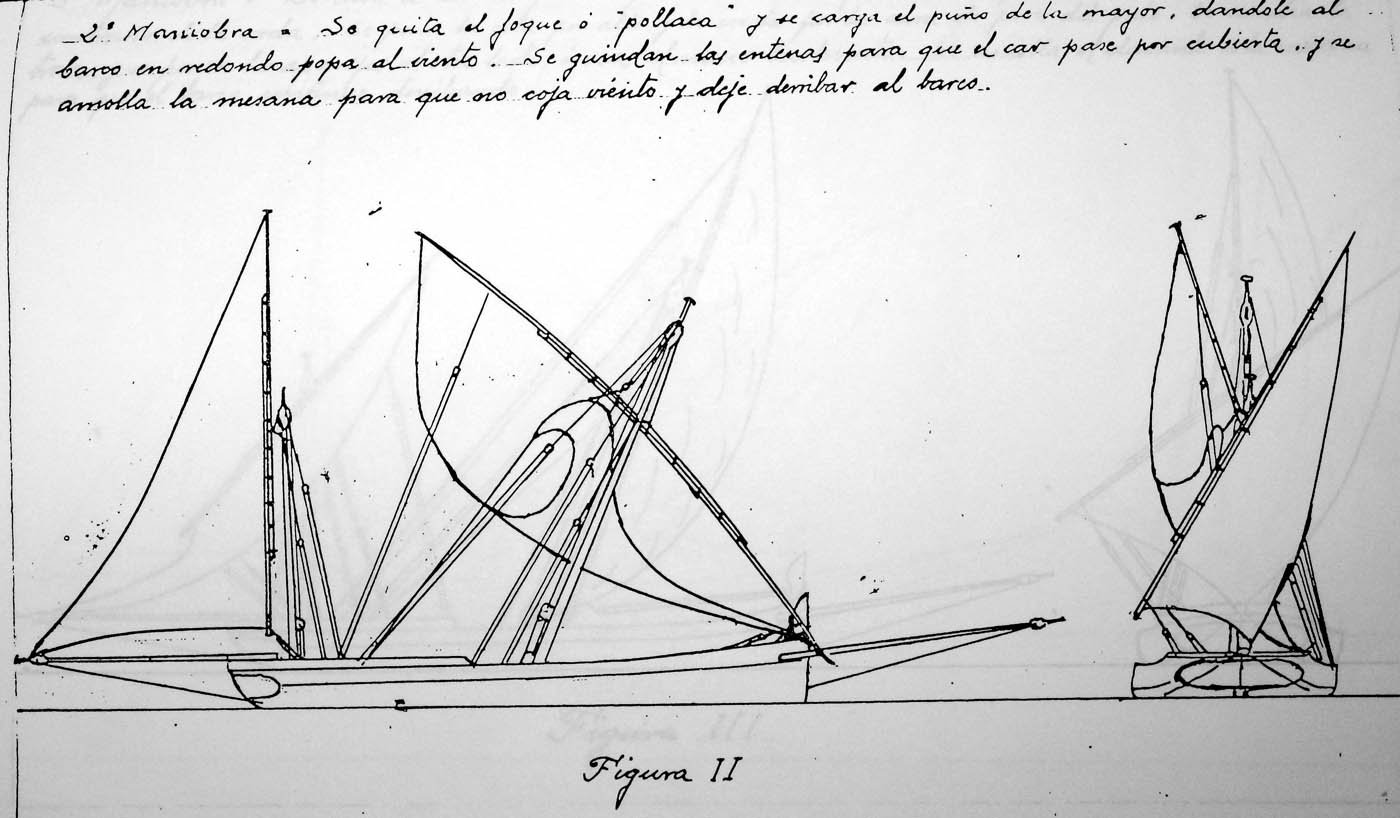 2ª Maniobra = Se quita el foque ó "pollaca" y se carga el puño de la mayor, dandole al
barco en redondo popa al viento. Se guindan las entenas para que el car pase por cubierta. y se
amolla la mesana para que no coja viento y deje derribar al barco.
Figura II
Figura III